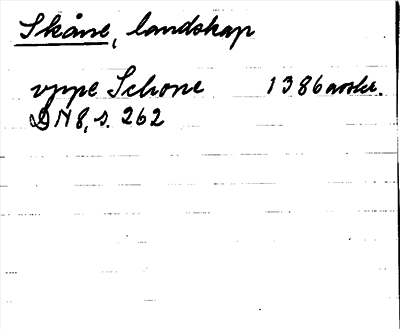 Skåne, landskap
uppe Schone 1386 avskr.
DN 8, s. 262